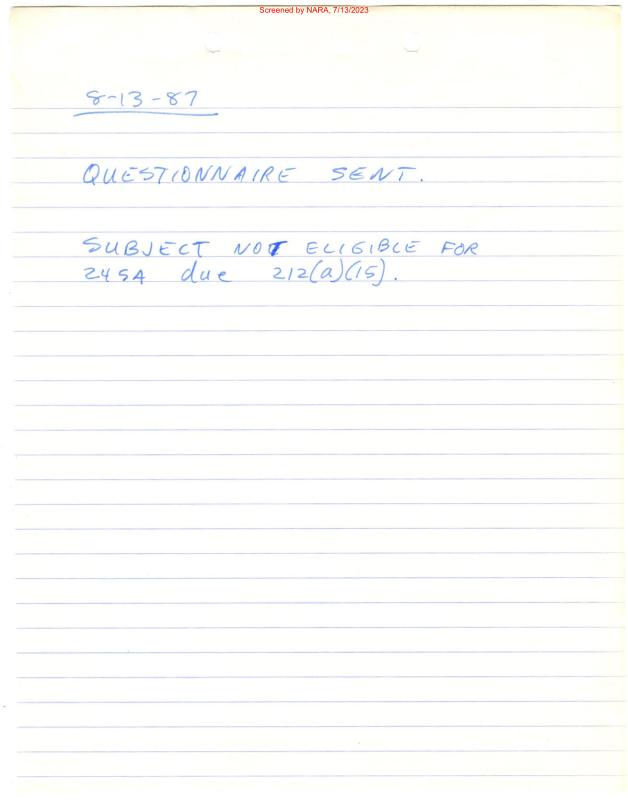 Screened by NARA, 7/13/2023
8-13-87
QUESTIONNAIRE SENT.
SUBJECT NOT ELIGIBLE FOR
245A due 212(a)(15).